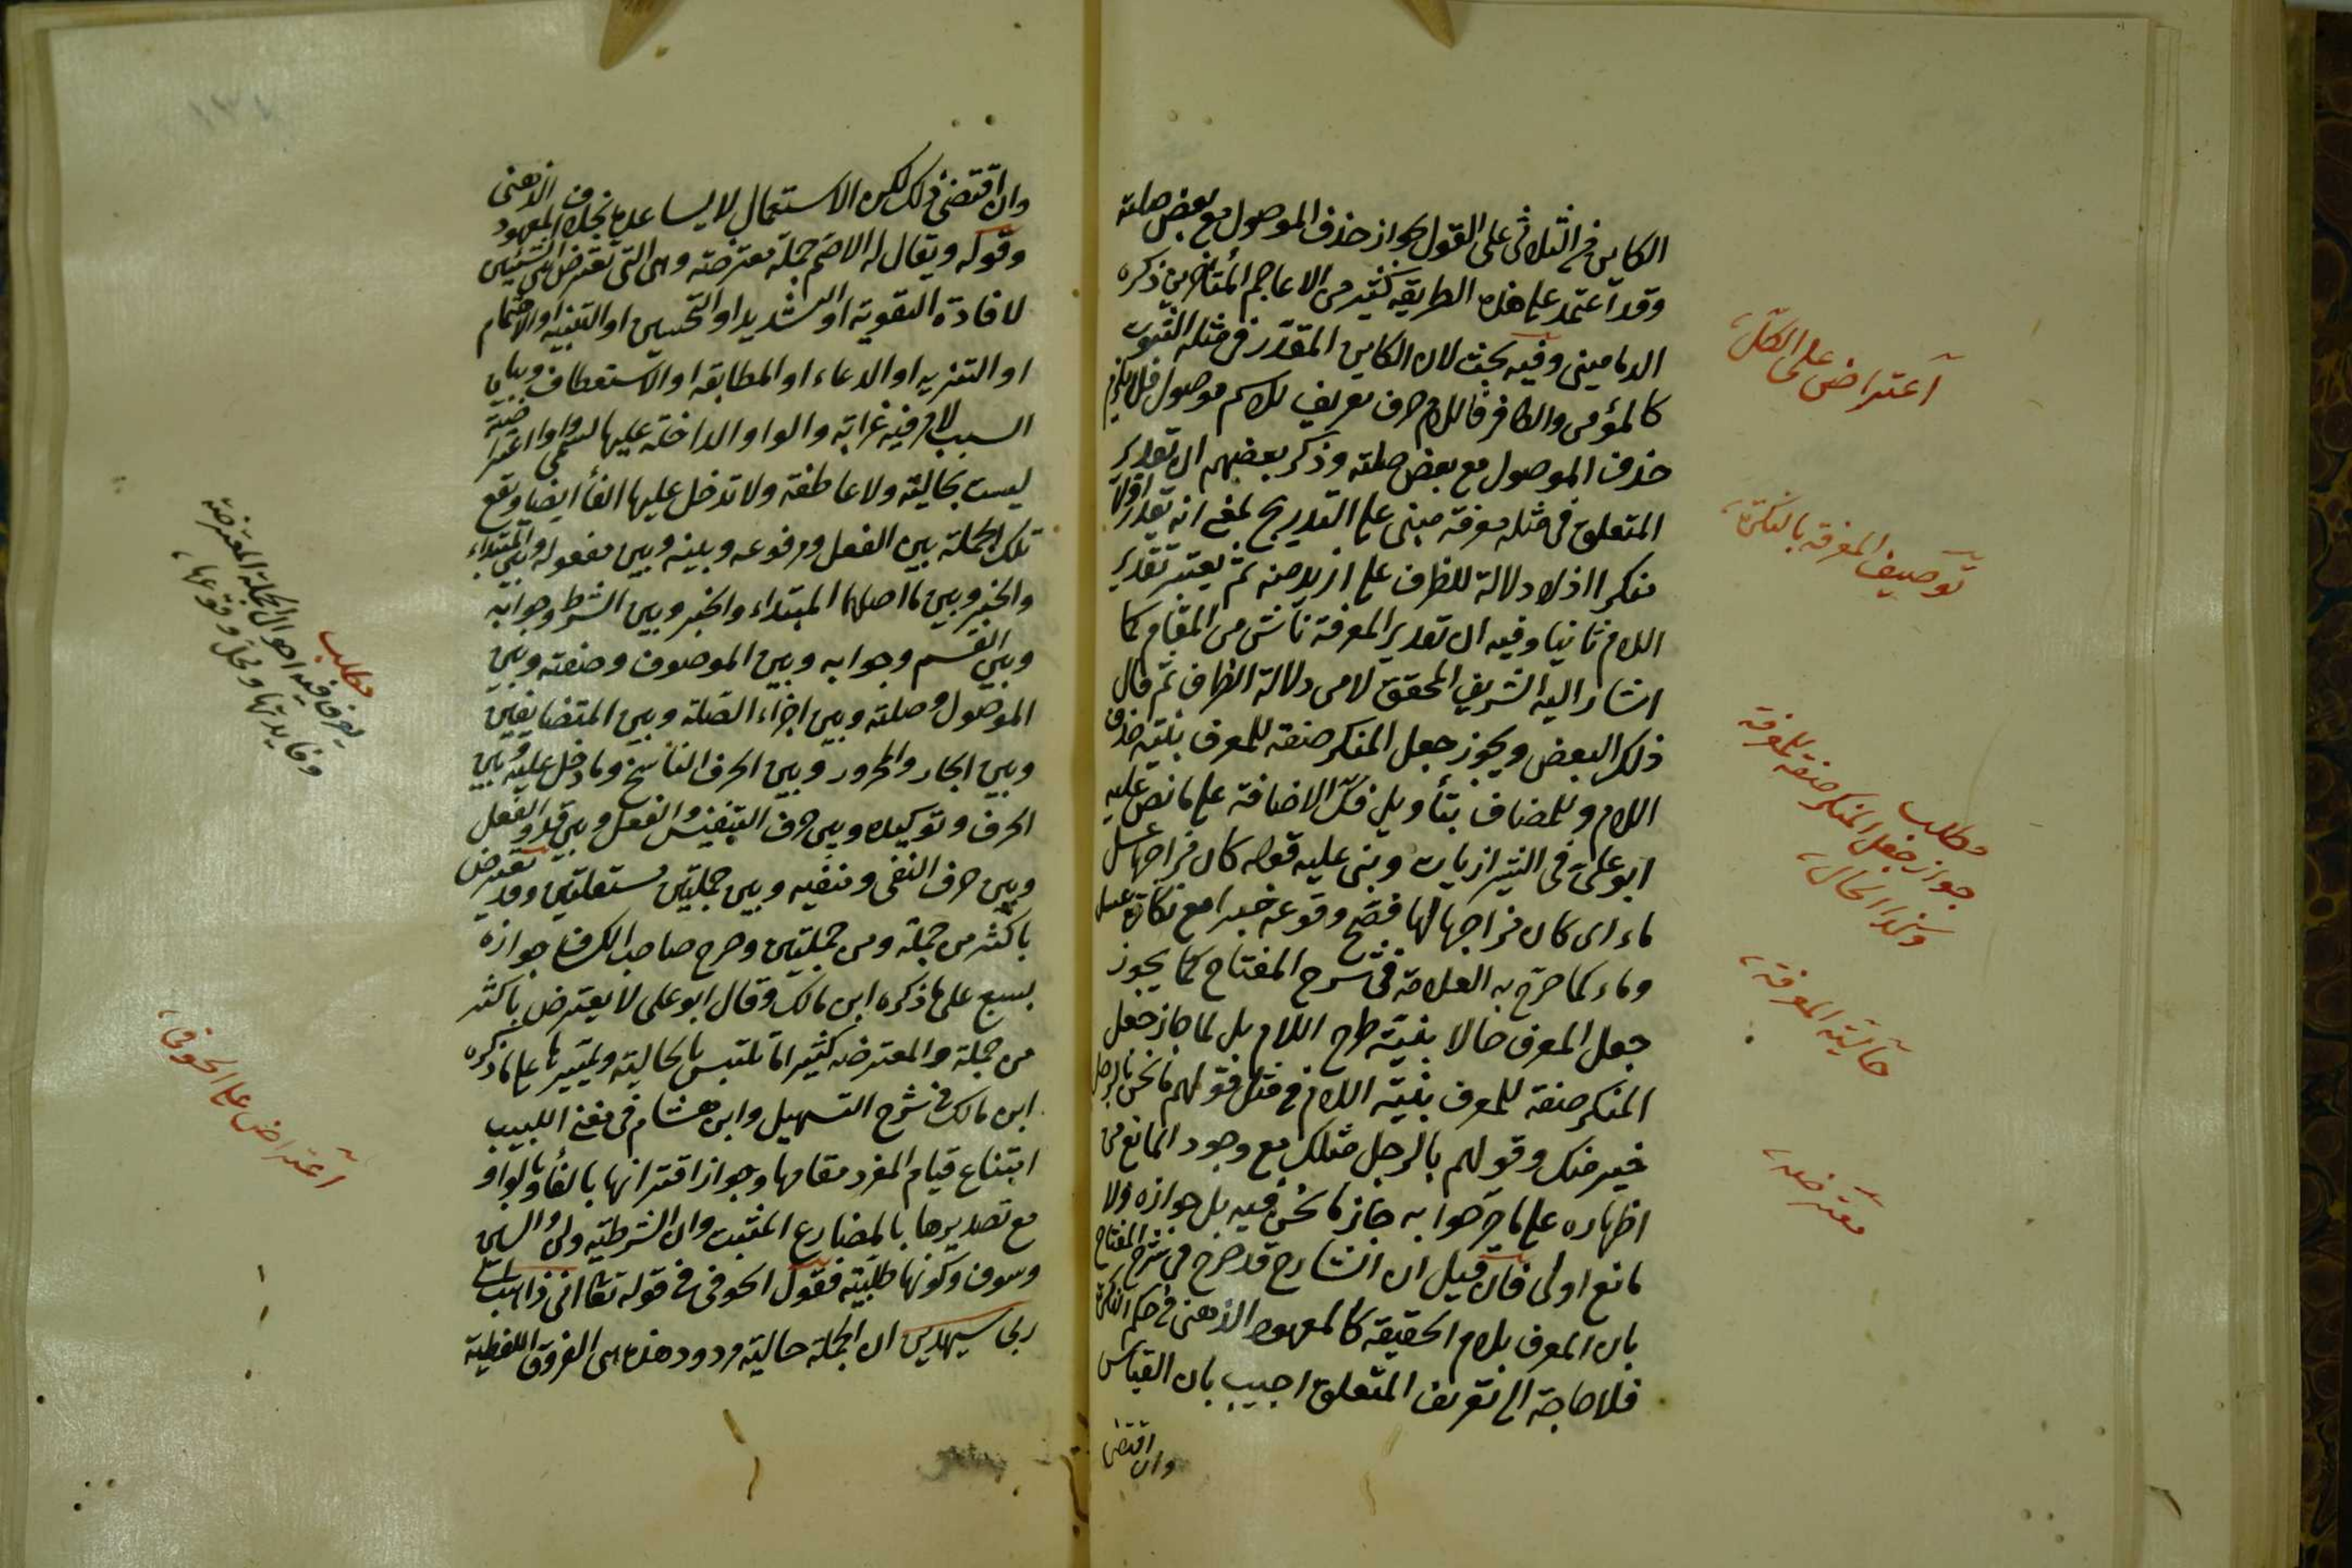 الكاين فى الثلاثى على القول بجواز حذف الموصول مع بعض صلته
وقد اعتمد على هذه الطريقة كثير من الاعاجم المتأخرين ذكره
الدمامينى وفيه بحث لان الكاين المقدر فى مثله الثبوت
كالمؤمن والكافر فاللام حرف تعريف لا اسم موصول فلا يلزم
حذف الموصول مع بعض صلته وذكر بعضهم ان تقدير
المتعلق فى مثله معرفة مبنى على التدريج بمعنى انه تقدر اولا
منكرا اذ لا دلالة للظرف على ازيد منه ثم يعتبر تقدير
اللام ثانيا وفيه ان تقدير المعرفة ناش من المقام كما
اشار اليه الشريف المحقق لا من دلالة الظرف ثم قال
ذلك البعض ويجوز جعل المنكر صفة للمعرف بنية حذف
اللام وللمضاف بتأويل فك الاضافة على ما نص عليه
ابو على فى الشيرازيات وبنى عليه قوله كان مزاجها عسل
ماء اى كان مزاجها لها فصح وقوعه خبرا مع نكارة عسل
وماء كما صرح به العلامة فى شرح المفتاح كما يجوز
جعل المعرف حالا بنية طرح اللام بل لما جاز جعل
المنكر صفة للمعرف بنية اللام فى مثل قولهم ما يحسن بالرجل
خير منك وقولهم بالرجل مثلك مع وجود المانع من
اظهاره على ما صرحوا به جاز ما نحن فيه بل جوازه ولا
مانع اولى فان قيل ان الشارح قد صرح فى شرح المفتاح
بان المعرف بلام الحقيقة كالمعهود الذهنى فى حكم النكرة
فلا حاجة الى تعريف المتعلق اجيب بان القياس
وان اقتضى
اعتراض على الكل
توصيف المعرفة بالنكرة
مطلب
جواز جعل المنكر صفة للمعرفة
حالية المعرفة
معترضه
وان اقتضى ذلك لكن الاستعمال لا يساعده بخلاف المعهود الذهنى
وقوله ويقال له الاصم جملة معترضة وهى التى تعترض بين الشيئين
لافادة التقوية او التشديد او التحسين او التنبيه او الاهتمام
او التنزيه او الدعاء او المطابقة او الاستعطاف وبيان
السبب لامر فيه غرابة والواو الداخلة عليها تسمى واوا اعتراضية
ليست بحالية ولا عاطفة ولا تدخل عليها الفأ ايضا وتقع
تلك الجملة بين الفعل ومرفوعه وبينه وبين مفعوله وبين المبتداء
والخبر وبين ما اصلهما المبتداء والخبر وبين الشرط وجوابه
وبين القسم وجوابه وبين الموصوف وصفته وبين
الموصول وصلته وبين اجزاء الصلة وبين المتضايفين
وبين الجار والمجرور وبين الحرف الناسخ وما دخل عليه وبين
الحرف وتوكيده وبين حرف التنفيس والفعل وبين قد والفعل
وبين حرف النفى ومنفيه وبين جملتين مستقلتين وقد تعترض
باكثر من جملة ومن جملتين وصرح صاحب الكشاف جوازه
بسبع على ما ذكره ابن مالك وقال ابو على لا يعترض باكثر
من جملة والمعترضه كثيرا ما تلتبس بالحالية ويميزها على ما ذكره
ابن مالك فى شرح التسهيل وابن هشام فى مغنى اللبيب
امتناع قيام المفرد مقامها وجواز اقترانها بالفأ وبالواو
مع تصديرها بالمضارع المثبت وان الشرطية ولن والسين
وسوف وكونها طلبية فقول الحوفى فى قوله تعالى انى ذاهب الى
ربى سيهدين ان الجملة حالية مردود هذه هى الفروق اللفظية
مطلب
يعرف فيه احوال الجملة المعترضة
وفايدتها ومحل وقوعها
اعتراض على الحوفى